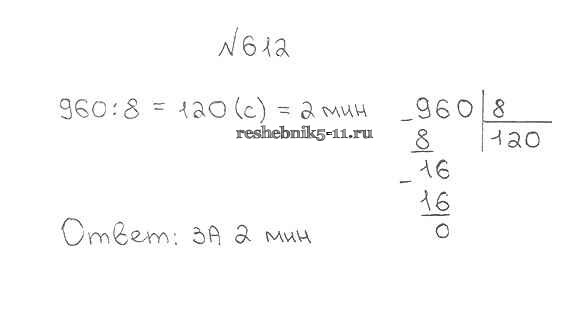 №612
960:8 = 120 (с) = 2 мин
reshebnik5-11.ru
- 960 | 8
8 | 120
- 16
16
0
Ответ: ЗА 2 мин